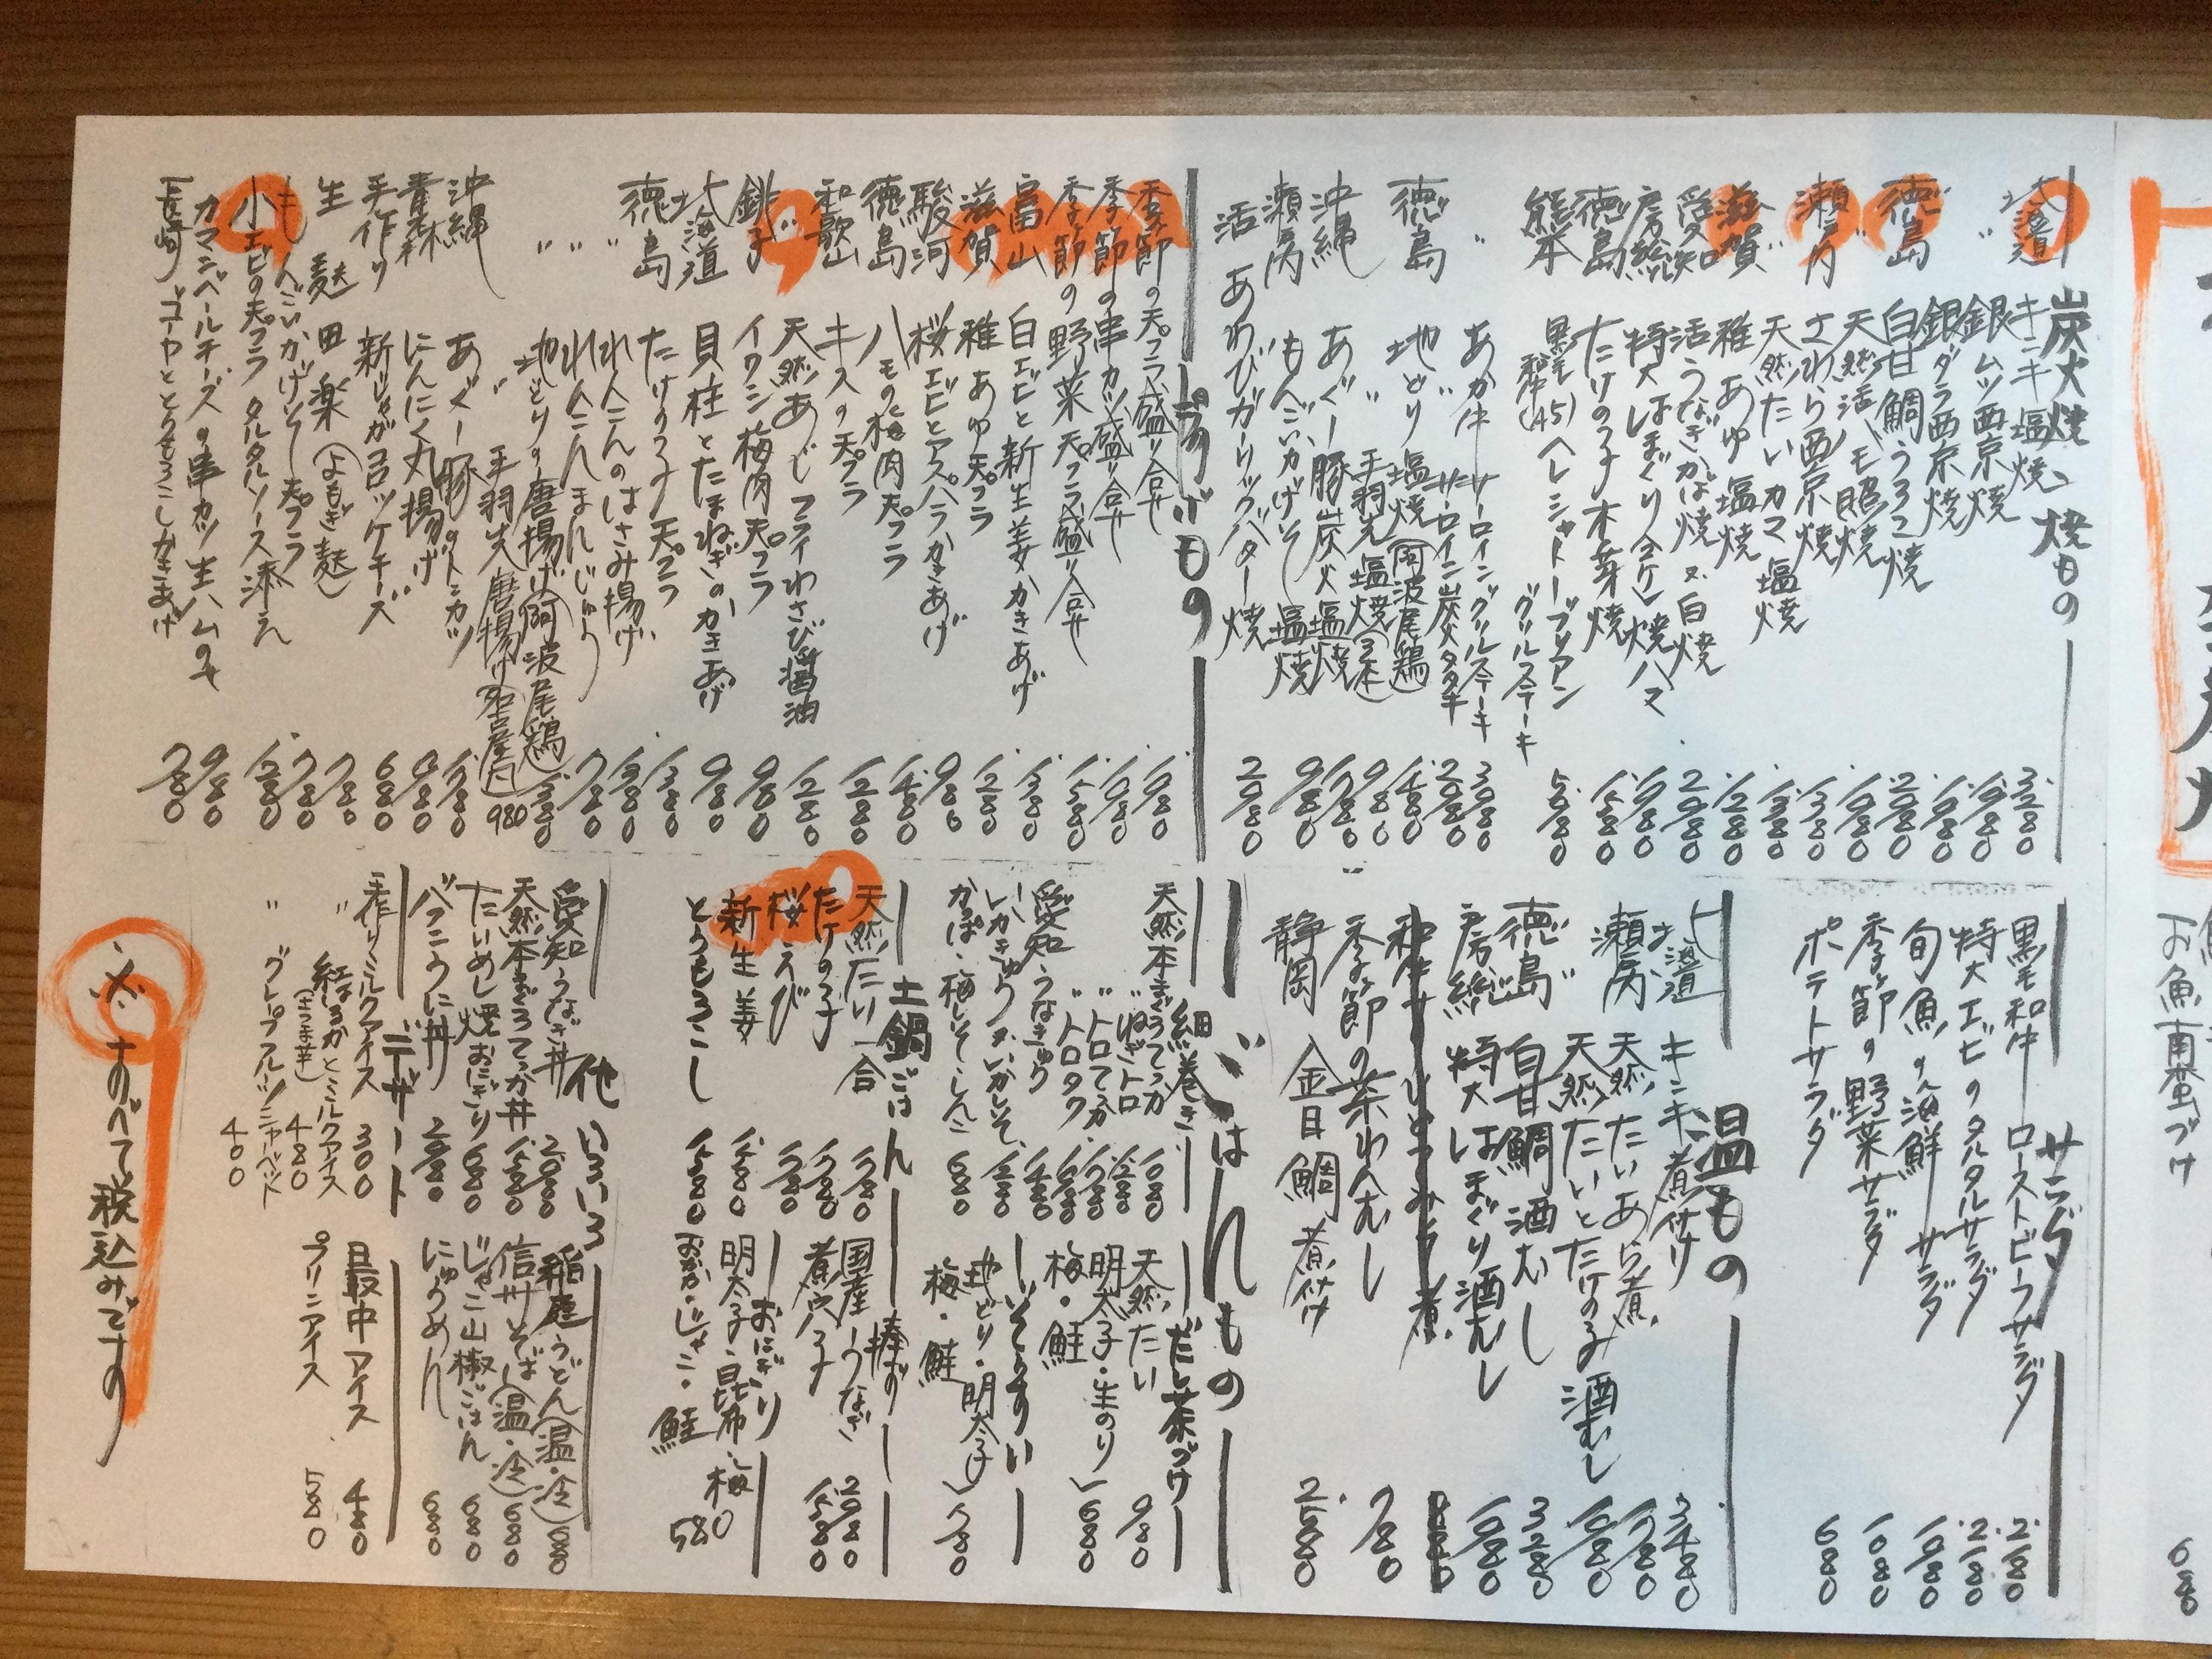 炭火焼、焼もの
北海道 キンキ塩焼 3280
〃 銀ムツ西京焼 1980
銀ダラ西京焼 1980
徳島 白甘鯛うろこ焼 2980
〃 天然活ハモ照焼 1980
瀬戸内 さわら西京焼 1380
〃 天然たいカマ塩焼 1380
滋賀 稚あゆ塩焼 1280
愛知 活うなぎかば焼又は白焼 2980
房総 特大はまぐり(2ケ)焼ハマ 1980
徳島 たけの子木の芽焼 1580
熊本 黒毛和牛(A5)ヘレシャトーブリアングリルステーキ 5980
〃 あか牛 サーロイングリルステーキ 3980
サーロイン炭火タタキ 2980
徳島 地どり塩焼(阿波尾鶏) 1480
〃 〃 手羽先塩焼(3本) 980
沖縄 あぐー豚炭火塩焼 1780
瀬戸内 もんごいかげそ塩焼 980
活 あわびガーリックバター焼 2980
揚げもの
季節の天プラ盛り合せ 1980
季節の串カツ盛り合せ 1980
季節の野菜天プラ盛り合せ 1580
富山 白エビと新生姜かきあげ 1380
滋賀 稚あゆ天プラ 1280
駿河 桜エビとアスパラかきあげ 980
徳島 ハモの梅肉天プラ 1480
和歌山 キスの天プラ 1280
〃 天然あじフライわさび醤油 1280
銚子 イワシ梅肉天プラ 980
北海道 貝柱とたまねぎのかきあげ 980
徳島 たけの子天プラ 1380
〃 れんこんのはさみ揚げ 1380
〃 れんこんまんじゅう 780
〃 地どりの唐揚げ(阿波尾鶏) 1380
〃 手羽先唐揚げ(名古屋風) 980
沖縄 あぐー豚のトンカツ 1780
青森 にんにく丸揚げ 980
手作り 新じゃがコロッケチーズ 680
生麩田楽(よもぎ麩) 780
もんごいかげそ天プラ 780
小エビの天プラ タルタルソース添え 1280
カマンベールチーズの串カツ生ハムのせ 980
長崎 ゴーヤととうもろこしかきあげ 780
サラダ
黒毛和牛ローストビーフサラダ 2180
特大エビのタルタルサラダ 2280
旬魚の海鮮サラダ 1980
季節の野菜サラダ 1080
ポテトサラダ 680
温もの
北海道 キンキ煮付け 3480
瀬戸内 天然たいあら煮 1780
天然たいとたけの子酒むし 1980
徳島 白甘鯛酒むし 3280
房総 特大はまぐり酒むし 1980
季節の茶わんむし 780
静岡 金目鯛煮付け 2580
ごはんもの
細巻き
天然本まぐろてっか 1080
〃 ねぎトロ 1280
〃 トロてっか 1780
〃 トロタク 1680
愛知うなきゅう 1480
いかきゅう又はいかしそ 1280
かっぱ・梅しそ・しんこ 680
だし茶づけ
天然たい 980
明太子・生のり
梅・鮭 680
ぞうすい
地どり・明太子
梅・鮭 780
土鍋ごはん
天然たい 一合 1780
たけの子 1780
桜えび 1780
新生姜 1580
とうもろこし 1580
棒ずし
国産うなぎ 2980
煮穴子 1580
おにぎり
明太子・昆布・梅
おかか・じゃこ・鮭 580
他いろいろ
愛知うなぎ丼 2980
天然本まぐろてっか丼 1580
たいめし焼おにぎり 680
バフンうに丼 2980
稲庭うどん(温・冷) 680
信州そば(温・冷) 680
じゃこ山椒ごはん 680
にゅうめん 680
デザート
手作りミルクアイス 300
〃 紅はるかとミルクアイス(さつま芋) 480
〃 グレープフルーツシャーベット 400
最中アイス 480
プリンアイス 580
※すのべて税込みです
お魚南蛮づけ 680